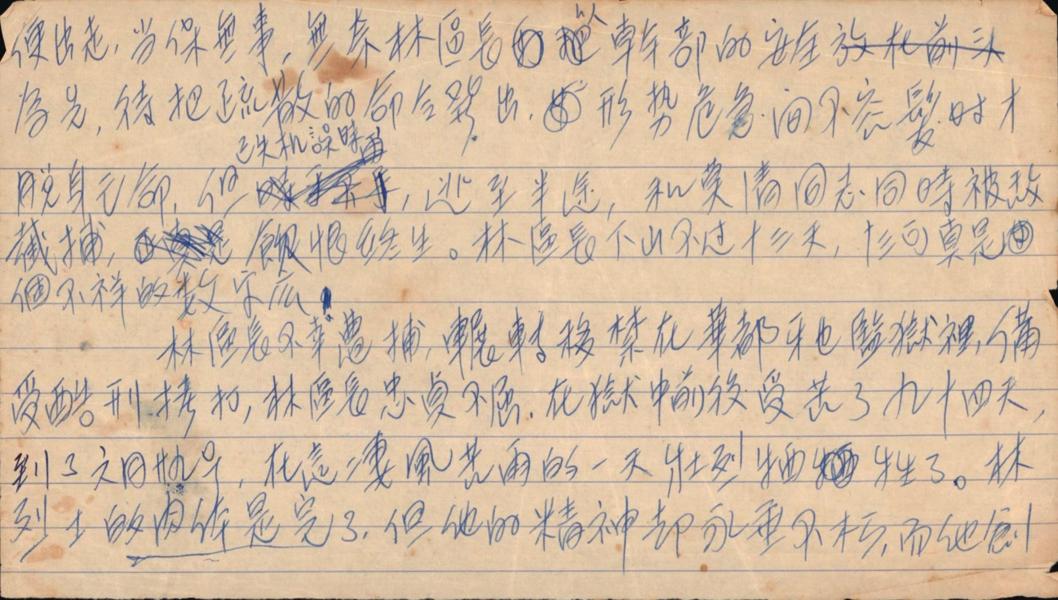 便出走，当保無事，無奈林區長以幹部的安全
為先，待把疏散的命令發出，形势危急，间不容髮时才
已失机誤時
脱身元部，但，逃至半途，和莫清同志同時被敌
截捕，飲恨终生。林區長下山不过十三天，十三可真是
個不祥的数字底！
林區長不幸遭捕，輾轉移禁在華都牙也監獄裡，備
受酷刑拷打，林區長忠貞不屈，在獄中前後受苦了九十四天，
到了六月，在淒風苦雨的一天壯烈牺牲了。林
烈士的肉体是完了，但他的精神却永垂不朽，而他創